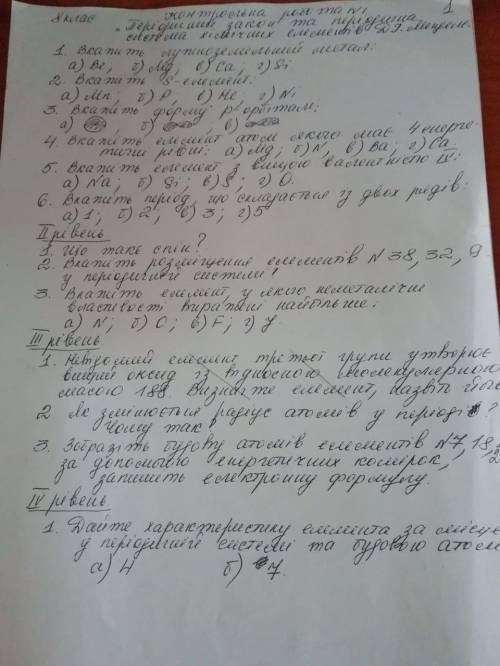 8 клас Контрольна робота №1 1
"Періодичний закон та періодична
система хімічних елементів Д.І. Менделє
1. Вкажіть лужноземельний метал:
а) Be; б) Mg; в) Ca; г) Si
2. Вкажіть S-елемент:
а) Mn; б) P; в) He; г) Ni
3. Вкажіть форму р-орбіталі:
а) б) в)
4. Вкажіть елемент атом якого має 4 енерге-
тичні рівні: а) Mg; б) N; в) Ba; г) Ca
5. Вкажіть елемент з вищою валентністю IV:
а) Na; б) Si; в) S; г) O.
6. Вкажіть період, що складається із двох рядів:
а) 1; б) 2; в) 3; г) 5
II рівень
1. Що таке спін?
2. Вкажіть розміщення елементів N 38, 32, 9
у періодичній системі,
3. Вкажіть елемент, у якого неметалічні
властивості виражені найбільше:
а) N; б) O; в) F; г) J.
III рівень
1. Невідомий елемент третьої групи утворює
вищий оксид із відносною молекулярною
масою 188. Визначте елемент, назвіть його
2 Як змінюється радіус атомів у періоді?
Чому так?
3. Зобразіть будову атомів елементів N7, 18,
за допомогою енергетичних комірок,
запишіть електронну формулу.
IV рівень
1. Дайте характеристику елемента за місце
у періодичній системі та будовою атом
а) 4 б) 7.